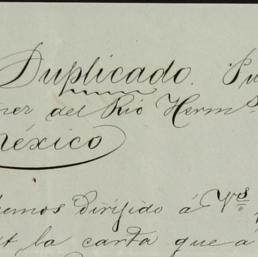 Duplicado.
del Rio Herm
México
dirijido á Vs
la carta que á